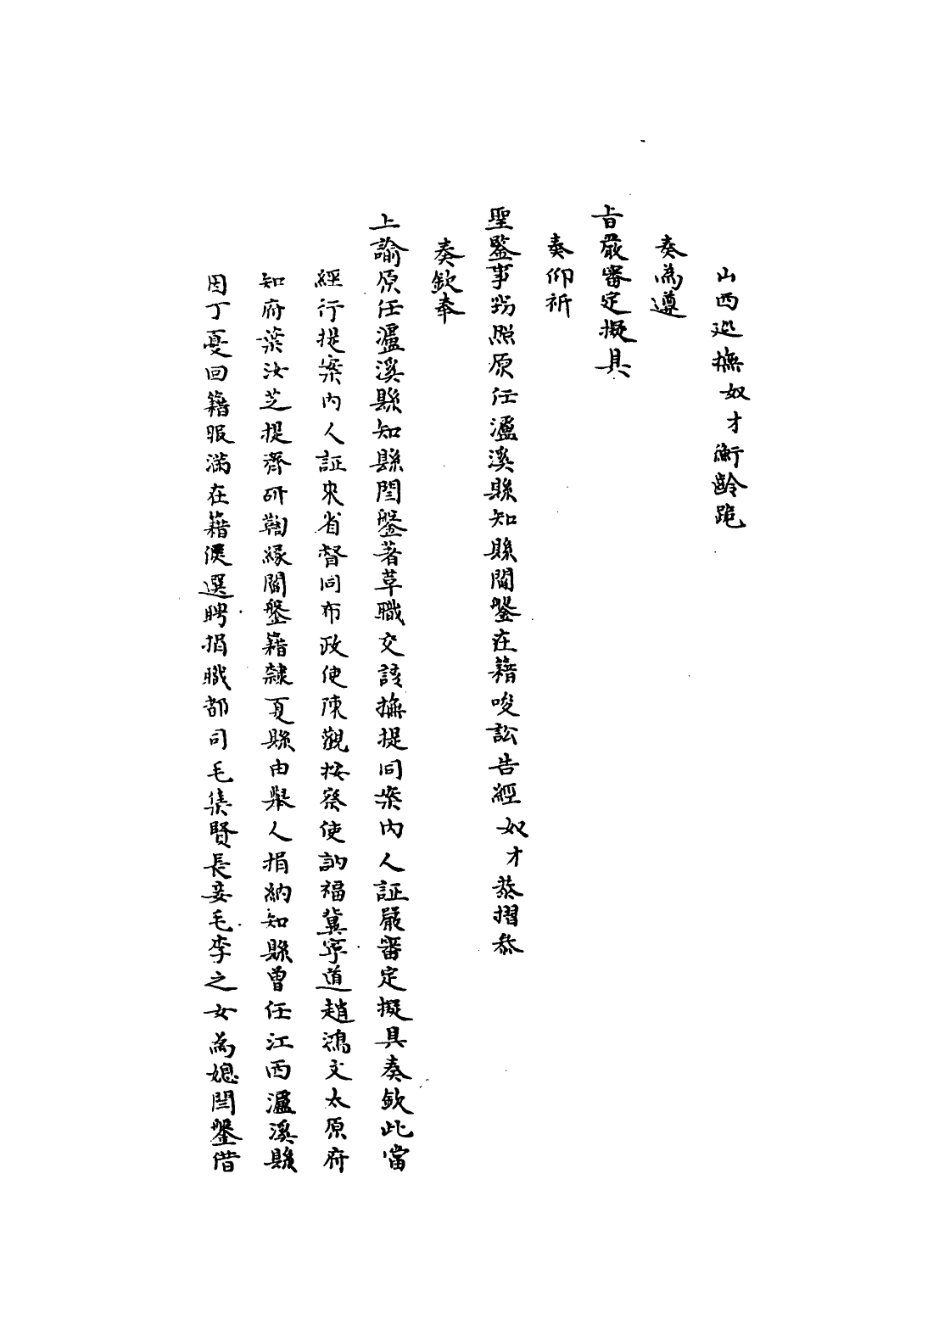 山西廵撫奴才衡齡跪
奏為遵
旨嚴審定擬具
奏仰祈
聖鑒事竊照原任瀘溪縣知縣閻鑒在籍唆訟告經奴才恭摺叅
奏欽奉
上諭原任瀘溪縣知縣閆鑒著革職交該撫提同案內人証嚴審定擬具奏欽此當
經行提案內人証來省督同布政使陳觀按察使訥福冀寧道趙鴻文太原府
知府葉汝芝提齊研鞫緣閻鑒籍隸夏縣由舉人捐納知縣曾任江西瀘溪縣
因丁憂回籍服滿在籍候選聘捐職都司毛集賢長妾毛李之女為媳閆鑒借